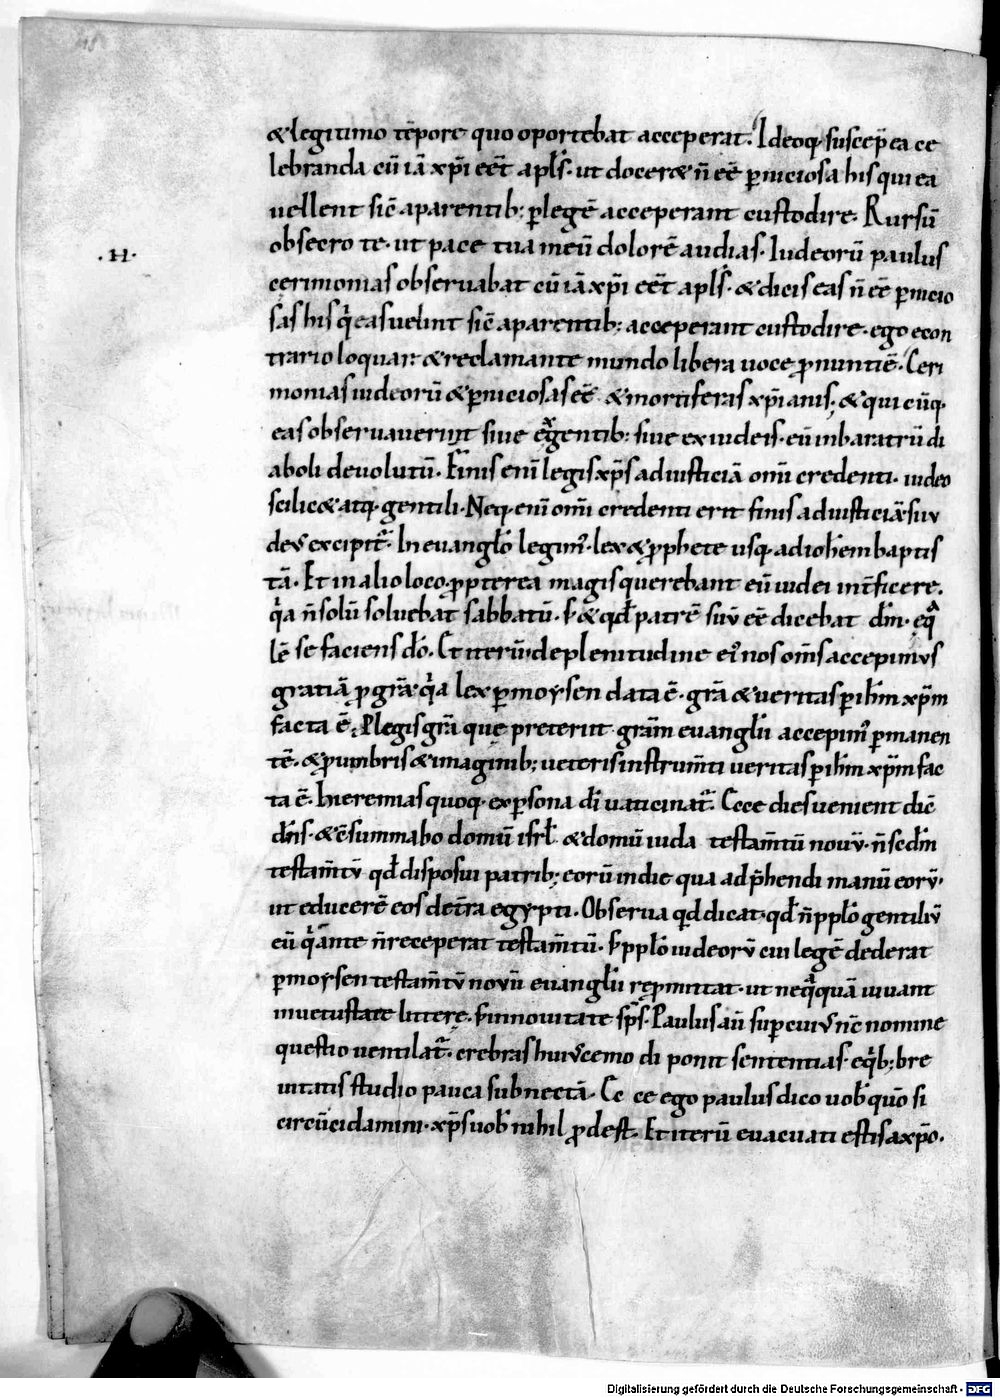 118
& legitimo tēpore quo oportebat acceperat. Ideoq; suscep̄ ea ce
lebranda cū iā xp̄i eēt apl̄s. ut docer& n̄ eē p̄niciosa his qui ea
uellent sic̄ a parentib; p̄ legē acceperant custodire. Rursū
obsecro te. ut pace tua meū dolorē audias. Iudeorū paulus
.H.
cerimonias obseruabat cū iā xp̄i eēt apl̄s. & dicis eas n̄ eē p̄nicio
sas his q̄ eas uelint sic̄ a parentib; acceperant custodire. ego econ
trario loquar & reclamante mundo libera uoce p̄nuntiē. Ceri
monias iudeorū & p̄niciosas eē & mortiferas xp̄ianis; & qui cūq;
eas obseruauerint siue ex gentib; siue ex iudeis. eū in baratrū di
aboli deuolutū. Finis eni legis xp̄s ad iusticiā omi credenti. iudeo
scilic& atq; gentili. Neq; eni omi credenti erit finis ad iusticiā. si iu
deus excipit̄. In euanglo legim'. lex & p̄phete usq; ad ioh̄em baptis
tā. Et in alio loco. p̄pterea magis querebant eū iudei int̄ficere.
q̄a n̄ solū soluebat sabbatū. s; & qd̄ patrē suū eē dicebat dm̄. eq̄
lē se faciens dō. Et iterū. de plenitudine ei' nos om̄s accepimus
gratiā p̄ grā. q̄a lex p̄ moysen data ē. grā & ueritas p̄ ih̄m xp̄m
facta ē. P legis grā que preteriit grām euanglii accepim' p̄manen
tē. & p̄ umbris & imaginib; ueteris instrum̄ti ueritas p̄ ih̄m xp̄m fac
ta ē. hieremias quoq; ex p̄sona di uaticinat̄. Ecce dies uenient dic̄
dn̄s. & c̄summabo domū isrl̄ & domū iuda testam̄tū nouū. n̄ scdm̄
testam̄tū qd̄ disposui patrib; eorū in die qua adp̄hendi manū eorū.
ut educerē eos de t̄ra egypti. Obserua quid dicat. qd̄ n̄ pplo gentiliū
cū q̄ ante n̄ receperat testam̄tū. s; pplo iudeorū cui legē dederat
p̄ moysen testam̄tū nouū euanglii rep̄mittat. ut neq̄quā uiuant
in uetustate littere. s; in nouitate sp̄s. Paulus aū sup cui' nc̄ nomine
questio uentilat̄. crebras huiuscemo di ponit sententias. eq̄b; bre
uitatis studio pauca subnectā. Ec ce ego paulus dico uob̄ quō si
circūcidamini. xp̄s uob̄ nihil p̄dest. Et iterū euacuati estis a xp̄o.
Digitalisierung gefördert durch die Deutsche Forschungsgemeinschaft - DFG